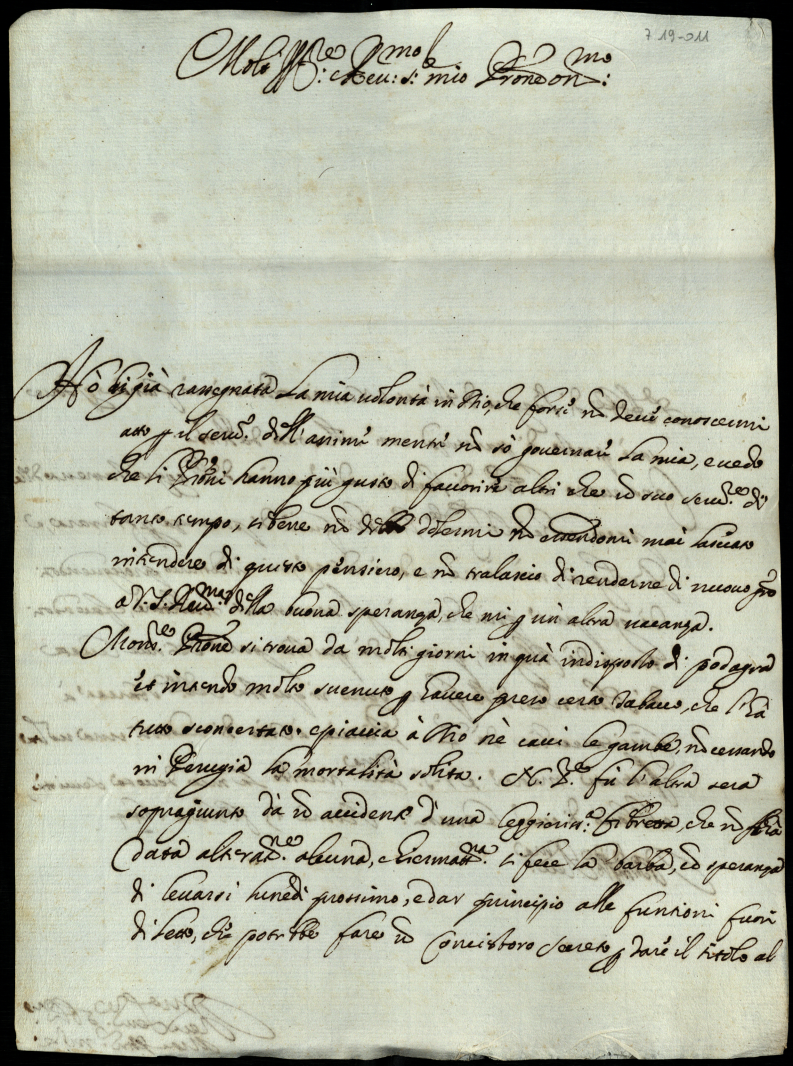 7 19-011
Molt' Ill:re e Reu: S: mio Prone Oss:mo
Hò di già rassegnata la mia uolontà in Dio, che forsi nõ deue conoscermi
atto p il seru.o dell'anime mentre nõ sò gouernare la mia, e uedo
che li Proni hanno più gusto di fauorire altri che ũ suo seru.re di
tanto tempo, si bene nõ deuo dolermi nõ essendomi mai lasciato
intendere di questo pensiero, e nõ tralascio di renderne di nuouo
a V.S. Reu.ma della buona speranza, che mi p un altra uacanza.
Mons.re Prone si troua da molti giorni in quà indisposto di podagra
et intendo molto suenuto p hauere preso certo Tabacco, che l'hà
tutto sconcertato. e piaccia à Dio nè caui le gambe, nõ cessando
in Perugia la mortalità solita. N. S.re fù l'altra sera
sopragiunto dà ũ accidente d'una leggieriss.a febretta, che nõ gli hà
data alterat.ne alcuna, e hiermatt.na si fece la barba, cõ speranza
di leuarsi lunedì prossimo, e dar principio alle funtioni fuori
di letto, che potrebbe fare ũ Concistoro secreto p dare il titolo al